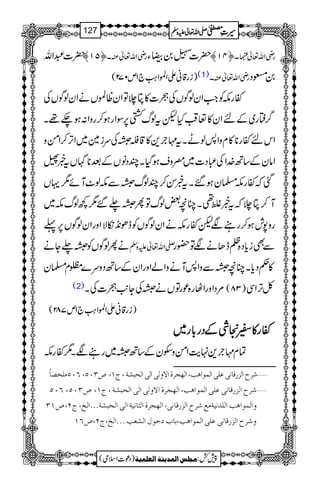 سیرتِ مصطفیٰ صلی اللہ تعالیٰ علیہ وسلم 127
رضی اللہ تعالیٰ عنہا۔ ﴿۱۴﴾ حضرت سہیل بن بیضاء رضی اللہ تعالیٰ عنہ۔ ﴿۱۵﴾ حضرت عبداللہ
بن مسعود رضی اللہ تعالیٰ عنہ۔(1) (زرقانی علی المواہب ج۱ص۲۷۰)
کفار مکہ کو جب ان لوگوں کی ہجرت کا پتا چلا تو ان ظالموں نے ان لوگوں کی
گرفتاری کے لئے ان کا تعاقب کیا لیکن یہ لوگ کشتی پر سوار ہو کر روانہ ہو چکے تھے۔
اس لئے کفار ناکام واپس لوٹے۔ یہ مہاجرین کا قافلہ حبشہ کی سرزمین میں اتر کر امن و
امان کے ساتھ خدا کی عبادت میں مصروف ہو گیا۔ چند دنوں کے بعد ناگہاں یہ خبر پھیل
گئی کہ کفار مکہ مسلمان ہو گئے۔ یہ خبر سن کر چند لوگ حبشہ سے مکہ لوٹ آئے مگر یہاں
آ کر پتا چلا کہ یہ خبر غلط تھی۔ چنانچہ بعض لوگ تو پھر حبشہ چلے گئے مگر کچھ لوگ مکہ میں
روپوش ہو کر رہنے لگے لیکن کفار مکہ نے ان لوگوں کو ڈھونڈ نکالا اور ان لوگوں پر پہلے
سے بھی زیادہ ظلم ڈھانے لگے تو حضور صلی اللہ تعالیٰ علیہ وسلم نے پھر لوگوں کو حبشہ چلے جانے
کا حکم دیا۔ چنانچہ حبشہ سے واپس آنے والے اور ان کے ساتھ دوسرے مظلوم مسلمان
کل تراسی (۸۳) مرد اور اٹھارہ عورتوں نے حبشہ کی جانب ہجرت کی۔(2)
(زرقانی علی المواہب ج۱ص۲۸۷)
کفار کا سفیر نجاشی کے دربار میں
تمام مہاجرین نہایت امن و سکون کے ساتھ حبشہ میں رہنے لگے۔ مگر کفار مکہ
شرح الزرقانی علی المواهب، الهجرة الاولی الی الحبشة، ج۱، ص۵۰۳، ۵۰۶ ملخصاً
شرح الزرقانی علی المواهب، الهجرة الاولی الی الحبشة، ج۱، ص۵۰۳، ۵۰۶
والمواهب اللدنية مع شرح الزرقانی، الهجرة الثانية الی الحبشة...الخ، ج۲، ص۳۱
وشرح الزرقانی علی المواهب، باب دخول الشعب...الخ، ج۲، ص۱۶
پیش کش: مجلس المدینۃ العلمیۃ (دعوتِ اسلامی)